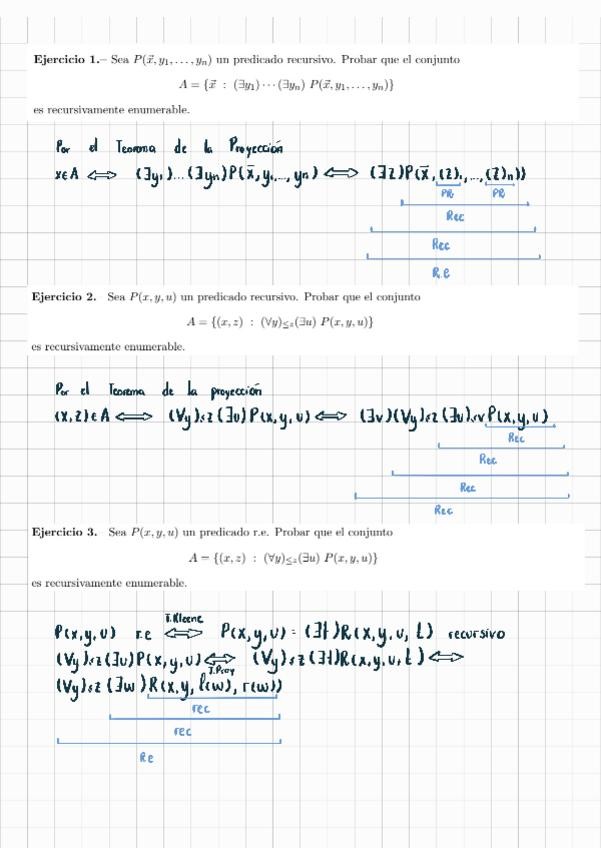 Ejercicio 1.– Sea P(x⃗, y₁, . . . , yₙ) un predicado recursivo. Probar que el conjunto
A = {x⃗ : (∃y₁) · · · (∃yₙ) P(x⃗, y₁, . . . , yₙ)}
es recursivamente enumerable.
Por el Teorema de la Proyección
x∈A ⟺ (∃y₁)...(∃yₙ)P(x̄, y₁,..., yₙ) ⟺ (∃z)P(x̄, (z)₁,...,(z)ₙ))
PR PR
Rec
Rec
R.e
Ejercicio 2. Sea P(x, y, u) un predicado recursivo. Probar que el conjunto
A = {(x, z) : (∀y)≤z(∃u) P(x, y, u)}
es recursivamente enumerable.
Por el Teorema de la proyección
(x,z)∈A ⟺ (∀y)≤z(∃u)P(x,y,u) ⟺ (∃v)(∀y)≤z(∃u)≤vP(x,y,u)
Rec
Rec
Rec
Rec
Ejercicio 3. Sea P(x, y, u) un predicado r.e. Probar que el conjunto
A = {(x, z) : (∀y)≤z(∃u) P(x, y, u)}
es recursivamente enumerable.
T.Kleene
P(x,y,u) r.e ⟺ P(x,y,u) = (∃t)R(x,y,u,t) recursivo
(∀y)≤z(∃u)P(x,y,u) ⟺ (∀y)≤z(∃t)R(x,y,u,t) ⟺
T.Proy
(∀y)≤z(∃w)R(x,y,l(w),r(w))
rec
rec
Re